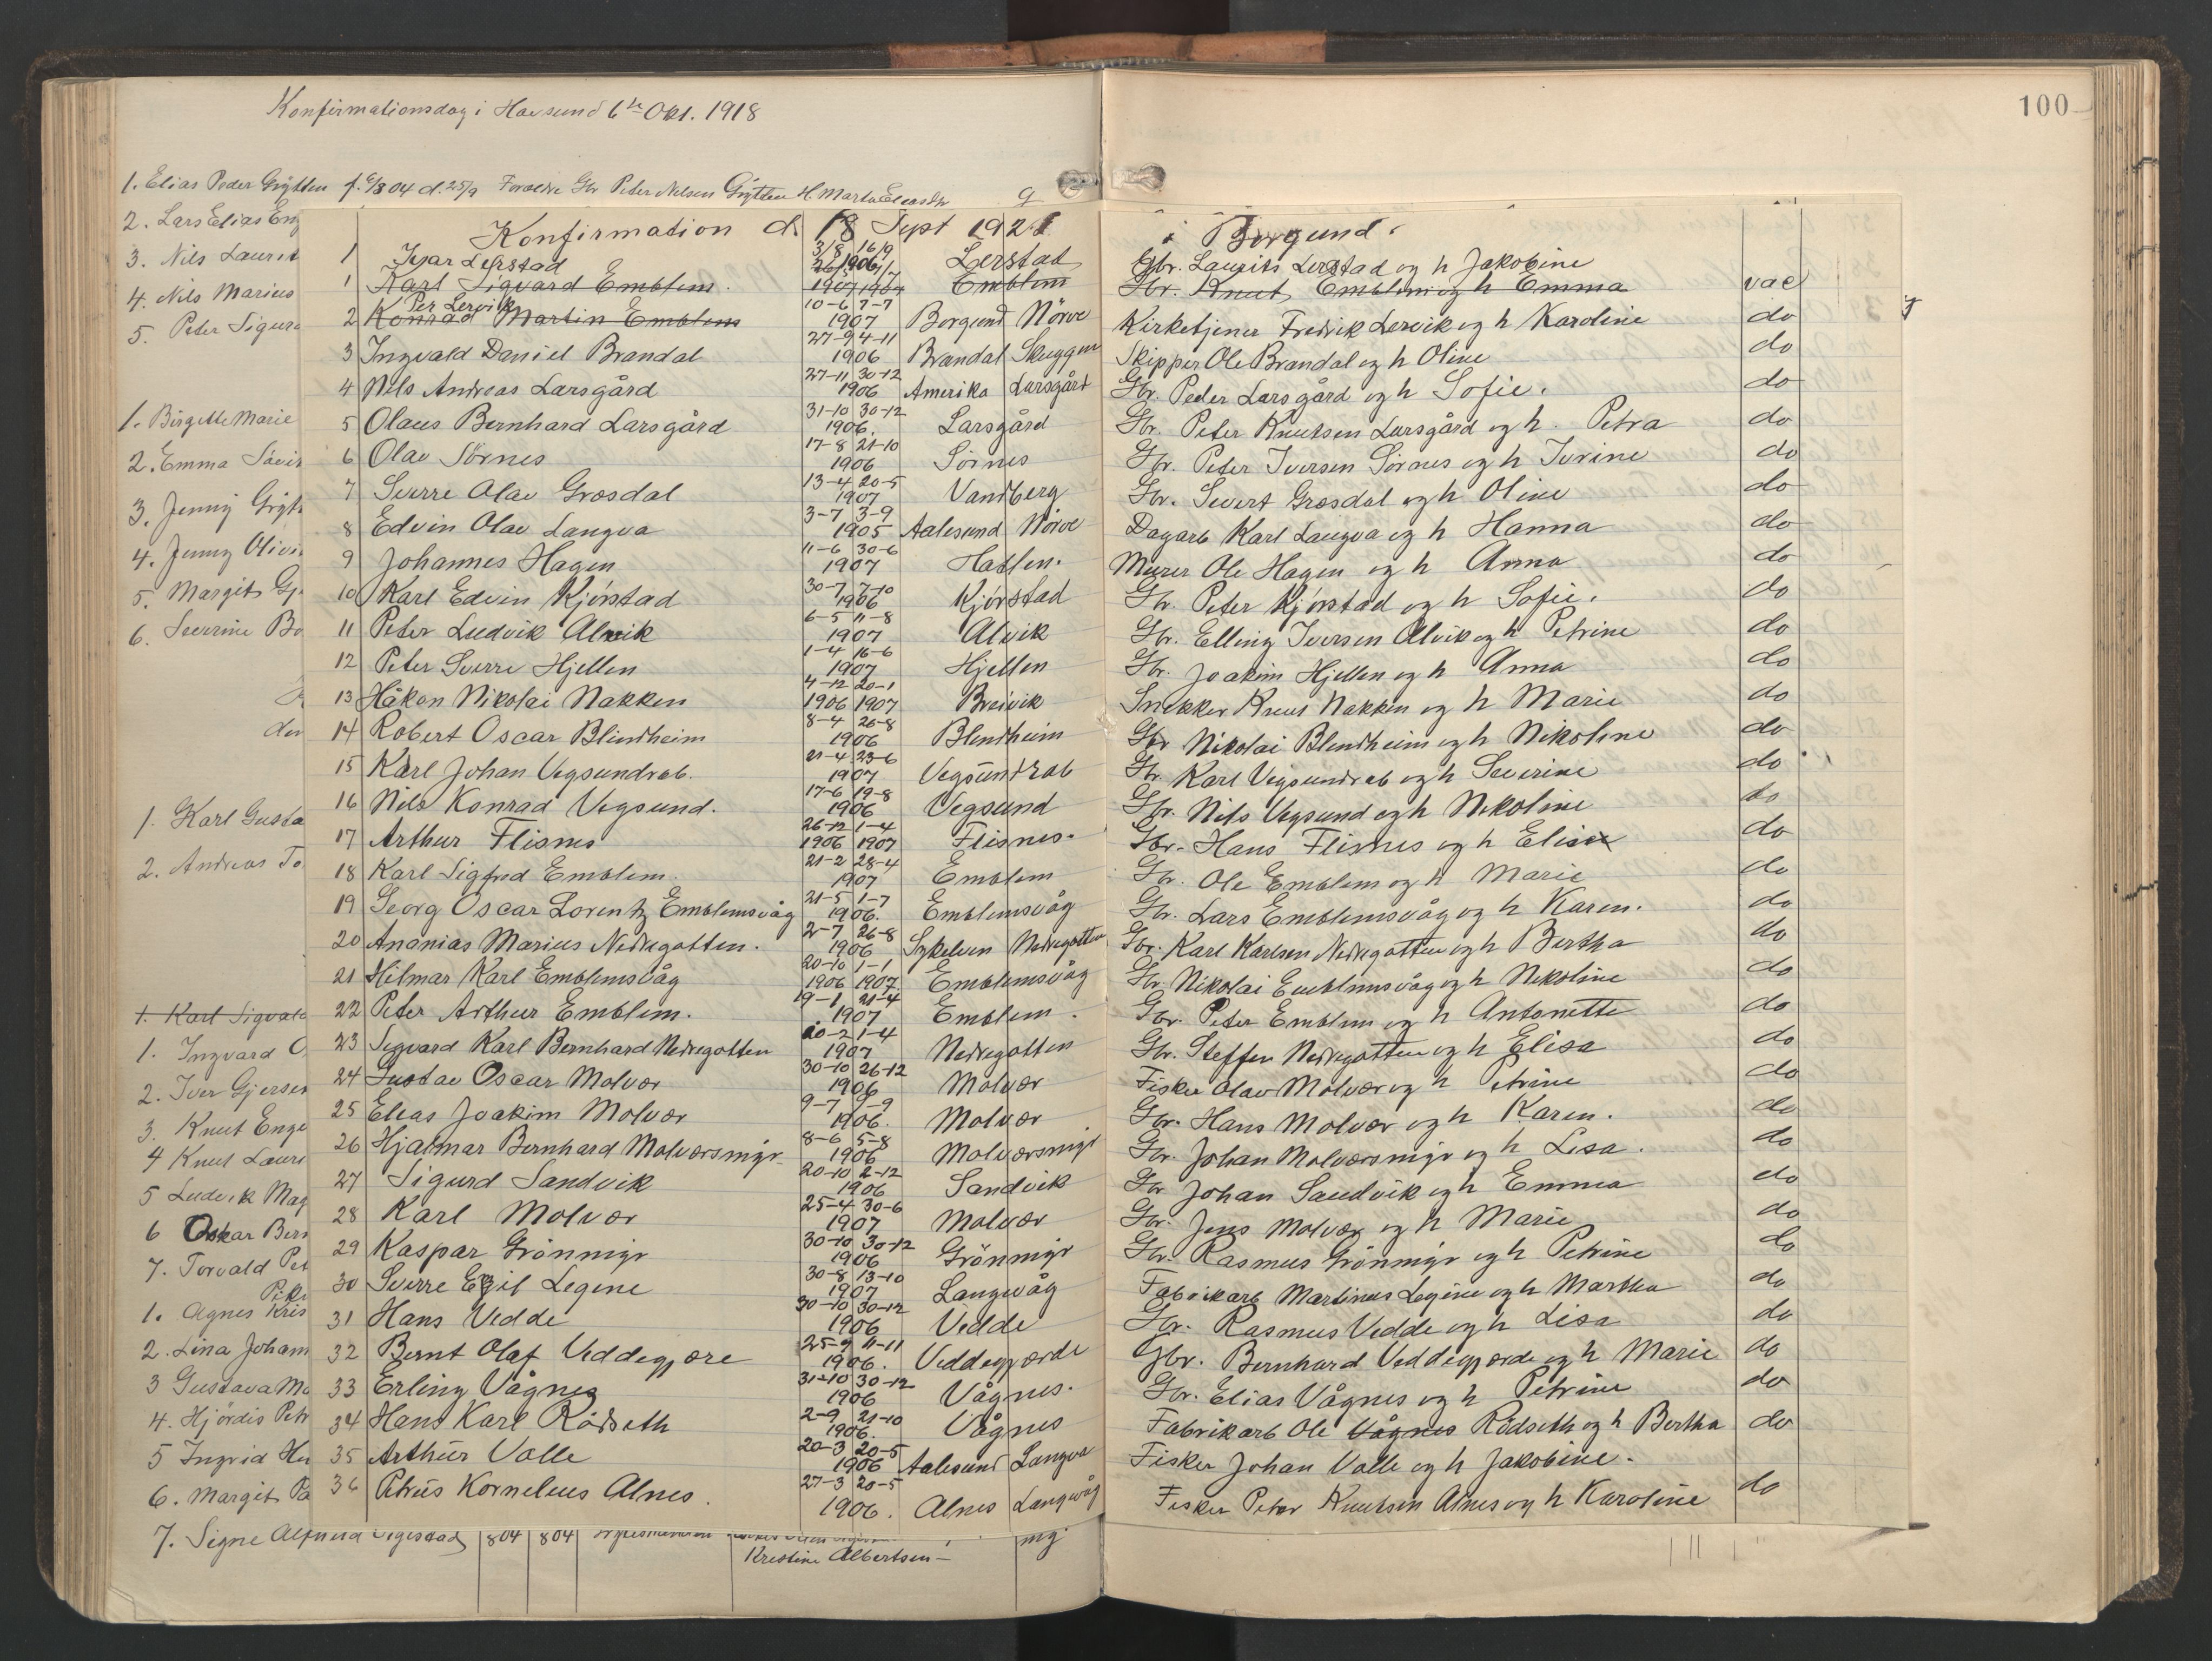 Konfirmationsdag i Havsund 6te Okt. 1918
100
1. Elias Peder Grytten f. 6/8 04 d. 25/9 Forældre Gbr Peter Nelsen Grytten H. Marta Eliasdtr g
2. Lars Elias Eng
3. Nils Laurit
4. Nils Marius
5. Peter Sigurd
1. Birgitte Marie
2. Emma Sövi
3. Jenny Gryt
4. Jenny Olivi
5. Margit Gj
6. Severine Bo
der
1. Karl Gusta
2. Andreas To
1. Karl Sigvald
1. Ingvard O
2. Iver Gjersen
3. Knut Enge
4 Knut Lauri
5 Ludvik Mag
6 Oskar Bern
7. Torvald Pet
Pike
1. Agnes Kris
2. Lina Johan
3 Gustava Ma
4. Hjördis Petr
5 Ingrid He
6. Margit Pa
7. Signe Alfrida Vegestad 804 804
Kristine Albertsen mg
Konfirmation d. 18 Sept 1921 i Borgund.
1 Ivar Lerstad 3/8 16/9 1906 Lerstad Gbr. Laurits Lerstad og h Jakobine
1 Karl Sigvard Emblem. 1907 1907 Emblem Gbr. Knut Emblem og h Emma vac
Per Lervik
2 Konrad Martin Emblem 10-6 7-7 1907 Borgund Nörve Kirketjener Fredrik Lervik og h Karoline do
3 Ingvald Daniel Brandal 27-9 4-11 1906 Brandal Skuggen Skipper Ole Brandal og h Oline do
4 Nils Andreas Larsgård 27-11 30-12 1906 Amerika Larsgård Gbr. Peder Larsgård og h Sofie. do
5 Olaus Bernhard Larsgård 31-10 30-12 1906. Larsgård Gbr. Peter Knutsen Larsgård og h. Petra do
6 Olav Sörnes 17-8 21-10 1906 Sörnes Gbr. Peter Iversen Sörnes og h Iverine do
7 Sverre Olav Grosdal 13-4 20-5 1907 Vandberg Gbr. Sivert Grosdal og h Oline do
8 Edvin Olav Langva 3-7 3-9 1905 Aalesund Nörve Dagarb Karl Langva og h Hanna do
9 Johannes Hagen 11-6 30-6 1907 Hatlen. Murer Ole Hagen og h Anna do
10 Karl Edvin Kjörstad 30-7 7-10 1906 Kjörstad Gbr. Peter Kjörstad og h Sofie. do
11 Peter Ludvik Alvik 6-5 11-8 1907 Alvik Gbr. Elling Iversen Alvik og h Petrine do
12 Peter Sverre Hjellen 1-4 16-6 1907 Hjellen Gbr. Joakim Hjellen og h Anna do
13 Håkon Nikolai Nakken 4-12 20-1 1906 1907 Breivik Snekker Knut Nakken og h Marie do
14 Robert Oscar Blindheim 8-4 26-8 1906 Blendheim Gbr Nikolai Blendheim og h Nikoline do
15 Karl Johan Vegsundrab. 21-4 23-6 1907 Vegsundrab Gbr. Karl Vegsundrab og h Severine do
16 Nils Konrad Vegsund. 17-6 19-8 1906 Vegsund Gbr. Nils Vegsund og h Nikoline do
17 Arthur Flisnes 26-12 1-4 1906 1907 Flisnes. Gbr. Hans Flisnes og h Elise do
18 Karl Sigfrid Emblem. 21-2 28-4 1907 Emblem Gbr. Ole Emblem og h Marie do
19 Georg Oscar Lorentz Emblemsvåg 21-5 1-7 1906. Emblemsvåg Gbr. Lars Emblemsvåg og h Karen. do
20 Ananias Marius Nedregotten. 2-7 26-8 1906 Sykelven Nedregotten Gbr. Karl Karlsen Nedregotten og h Bertha do
21 Hilmar Karl Emblemsvåg 20-10 1-1 1906 1907. Emblemsvåg Gbr. Nikolai Emblemsvåg og h Nikoline do
22 Peter Arthur Emblem. 19-1 21-4 1907 Emblem. Gbr. Peter Emblem og h Antonette do
23 Segvard Karl Bernhard Nedregotten 10-2 1-4 1907 Nedregotten Gbr. Steffen Nedregotten og h Elisa do
24 Gustav Oscar Molvær 30-10 26-12 1906 Molvær Fisker Olav Molvær og h Petrine do
25 Elias Joakim Molvær 9-7 9-9 1906. Molvær Gbr. Hans Molvær og h Karen. do
26 Hjalmar Bernhard Molværsmyr 8-6 5-8 1906 Molværsmyr Gbr. Johan Molværsmyr og h Lisa. do
27 Sigurd Sandvik 20-10 2-12 1906 Sandvik Gbr Johan Sandvik og h Emma do
28 Karl Molvær 25-4 30-6 1907 Molvær Gbr. Jens Molvær og h Marie do
29 Kaspar Grönmyr 30-10 30-12 1906 Grönmyr Gbr. Rasmus Grönmyr og h Petrine do
30 Sverre Egil Legene 30-8 13-10 1907 Langevåg Fabrikarb Martinus Legene og h Martha do
31 Hans Vedde 30-10 30-12 1906 Vedde Gbr. Rasmus Vedde og h Lisa do
32 Bernt Olaf Veddegjære 25-9 11-11 1906. Veddegjærde Gbr. Bernhard Veddegjærde og h Marie do
33 Erling Vågnes 31-10 30-12 1906 Vågnes. Gbr. Elias Vågnes og h Petrine do
34 Hans Karl Rödseth 2-9 21-10 1906. Vågnes Fabrikarb Ole Vågnes Rödseth og h Bertha do
35 Arthur Valle 20-3 20-5 1906 Aalesund Langva Fisker Johan Valle og h Jakobine.
36 Petrus Kornelius Alnes. 27-3 20-5 1906. Alnes Langevåg Fisker Peter Knutsen Alnes og h Karoline do